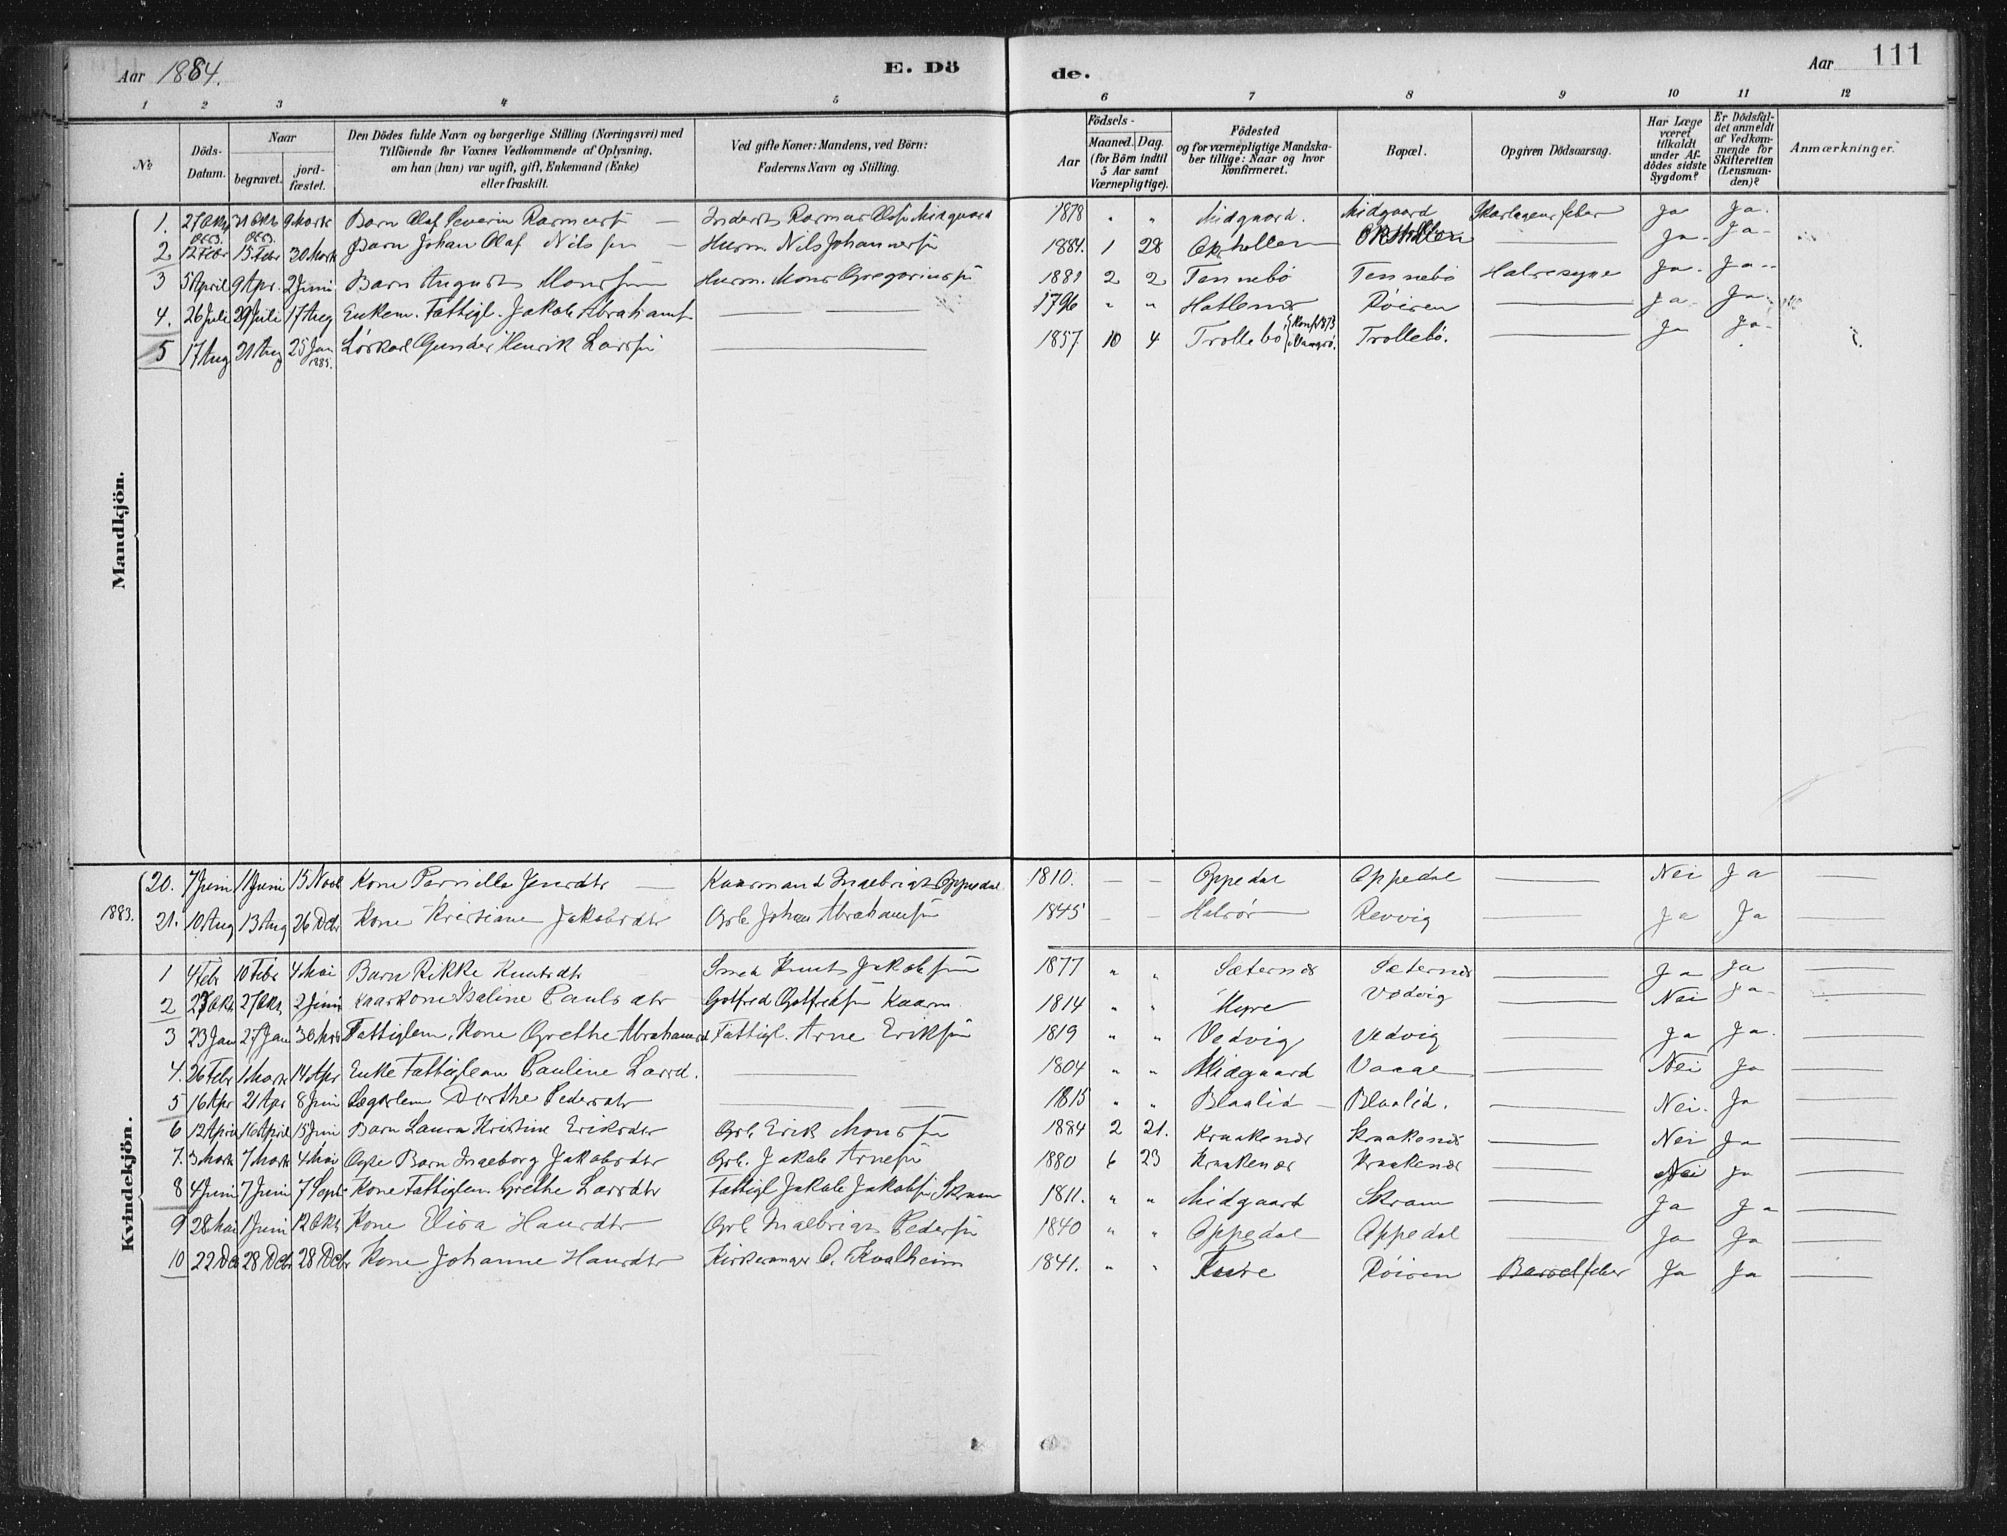 Aar 1884. E. Dö de. Aar 111
1 2 3 4 5 6 7 8 9 10 11 12
No Döds-Datum. Naar begravet. jordfæstet. Den Dödes fulde Navn og borgerlige Stilling (Næringsvei) med Tilföiende for Voxnes Vedkommende af Oplysning, om han (hun) var ugift, gift, Enkemand (Enke) eller fraskilt. Ved gifte Koner: Mandens, ved Börn: Faderens Navn og Stilling. Födsels- Aar Maaned. Dag. (for Börn indtil 5 Aar samt Værnepligtige). Födested og for værnepligtige Mandskaber tillige: Naar og hvor konfirmeret. Bopæl. Opgiven Dödsaarsag. Har Læge været tilkaldt under Afdödes sidste Sygdom? Er Dödsfaldet anmeldt af Vedkommende for Skifteretten (Lensmanden)? Anmærkninger.
Mandkjön.
1. 27 Okt 1883 9 Marts Barn Olaf Severin Rasmuss — Inderst Rasmus Midgaard 1878 " " Midgaard. Midgaard Skarlagensfeber Ja Ja.
2 12 Febr 15 Febr 30 Marts Barn Johan Olaf Nilssen — Husm. Nils Johannes 1884. 1 28 — Ja. Ja.
3 5 April 9 Apr. 2 Juni Barn August Monssen Husm. Mons Gregoriussen 1881 2 2 Tennebø Tennebø Halvesyge Ja. Ja.
4. 26 Juli 29 Juli 17 Aug Enkem. Fattigl. Jakob Abrahams — — 1796 " " Hatlenæs Røisen — Ja. Ja.
5 17 Aug 21 Aug 25 Jan 1885. Løskarl Gunder Henrik Larssen — 1857 10 4 Trollebø Trollebø. — Ja Ja.
Kvindekjön.
1883. 20. 7 Juni 11 Juni 15 Novb Kone Pernille Jensdtr — Kaarmand Ingebrigt Oppedal 1810. — — Oppedal Oppedal — Nei Ja —
21. 10 Aug 13 Aug 26 Decbr Kone Kristiane Jakobsdtr Grb. Johan Abrahamsen 1845 — — Halsør Revvig — Ja Ja —
1 4 Febr 10 Febr 4 Mai Barn Rikke Knutsdtr Smed Knut Jakobsen 1877 " " Sæternæs Sæternæs — Ja Ja —
2 27 Okt 2 Juni Kaarkone Isaline Paulsdtr Gotfred Gotfredsen Kaarm 1814 " " Myre Vedvig — Nei Ja. —
3 23 Jan 27 Jan 30 Mrts Fattiglem, Kone Grethe Abrahamsd Fattigl. Arne Eriksen 1819 " " Vedvig Vedvig — Ja Ja. —
4. 26 Febr 1 Marts 14 Apr Enke Fattiglem Pauline Larsd. — 1804 " " Midgaard Vaage — Nei Ja —
5 16 Apr 21 Apr 8 Juni Lægslem Dorthe Pedersdtr — — 1815 " " Blaalid — Blaalid. — Nei. Ja —
6 12 April 16 April 15 Juni Barn Laura Kristine Eriksdtr Grb. Erik Monssen 1884 2 21. Kraakenæs Kraakenæs — Nei Ja —
7. 3 Marts 7 Marts 4 Mai Barn Ingeborg Jakobsdtr Grb. Jakob Arnesen 1880 6 23 Kraakenæs Kraakenæs — Nei Ja —
8 4 Juni 7 Juni 7 Sept. Kone Fattiglem. Grethe Larsdtr Fattigl Jakob Jakobsen Skram 1811. " " Midgaard Skram — Ja Ja —
9 28 Mai 1 Juni 12 Okt Kone Elisa Hansdtr Grb Ingebrigt Pedersen 1840 " " Oppedal Oppedal — Ja Ja —
10 22 Dcb 28 Dcbr 28 Dcbr Kone Johanne Hansdtr Kirkesanger O. Kvalheim 1841. " " Røisen Barselfeber Ja Ja —